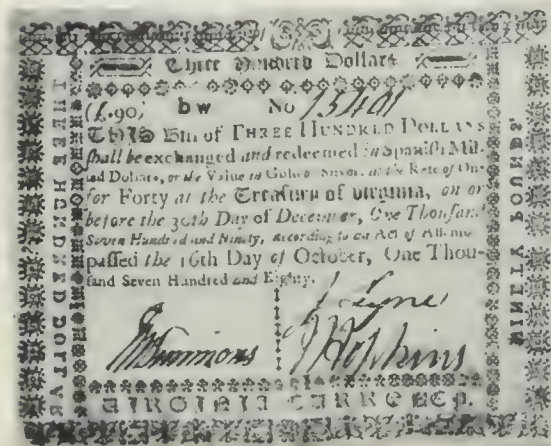 Three Hundred Dollars
(£.90) bw No 15401
THIS Bill of THREE HUNDRED DOLLARS
shall be exchanged and redeemed in Spanish Mil-
led Dollars, or the Value in Gold or Silver, at the Rate of One
for Forty at the Treasury of Virginia, on or
before the 30th Day of December, One Thousand
Seven Hundred and Ninety, according to an Act of Assembly
passed the 16th Day of October, One Thou-
sand Seven Hundred and Eighty.
J Lyne
J Hopkins
VIRGINIA CURRENCY.
THREE HUNDRED DOLLAR
NINETY POUNDS